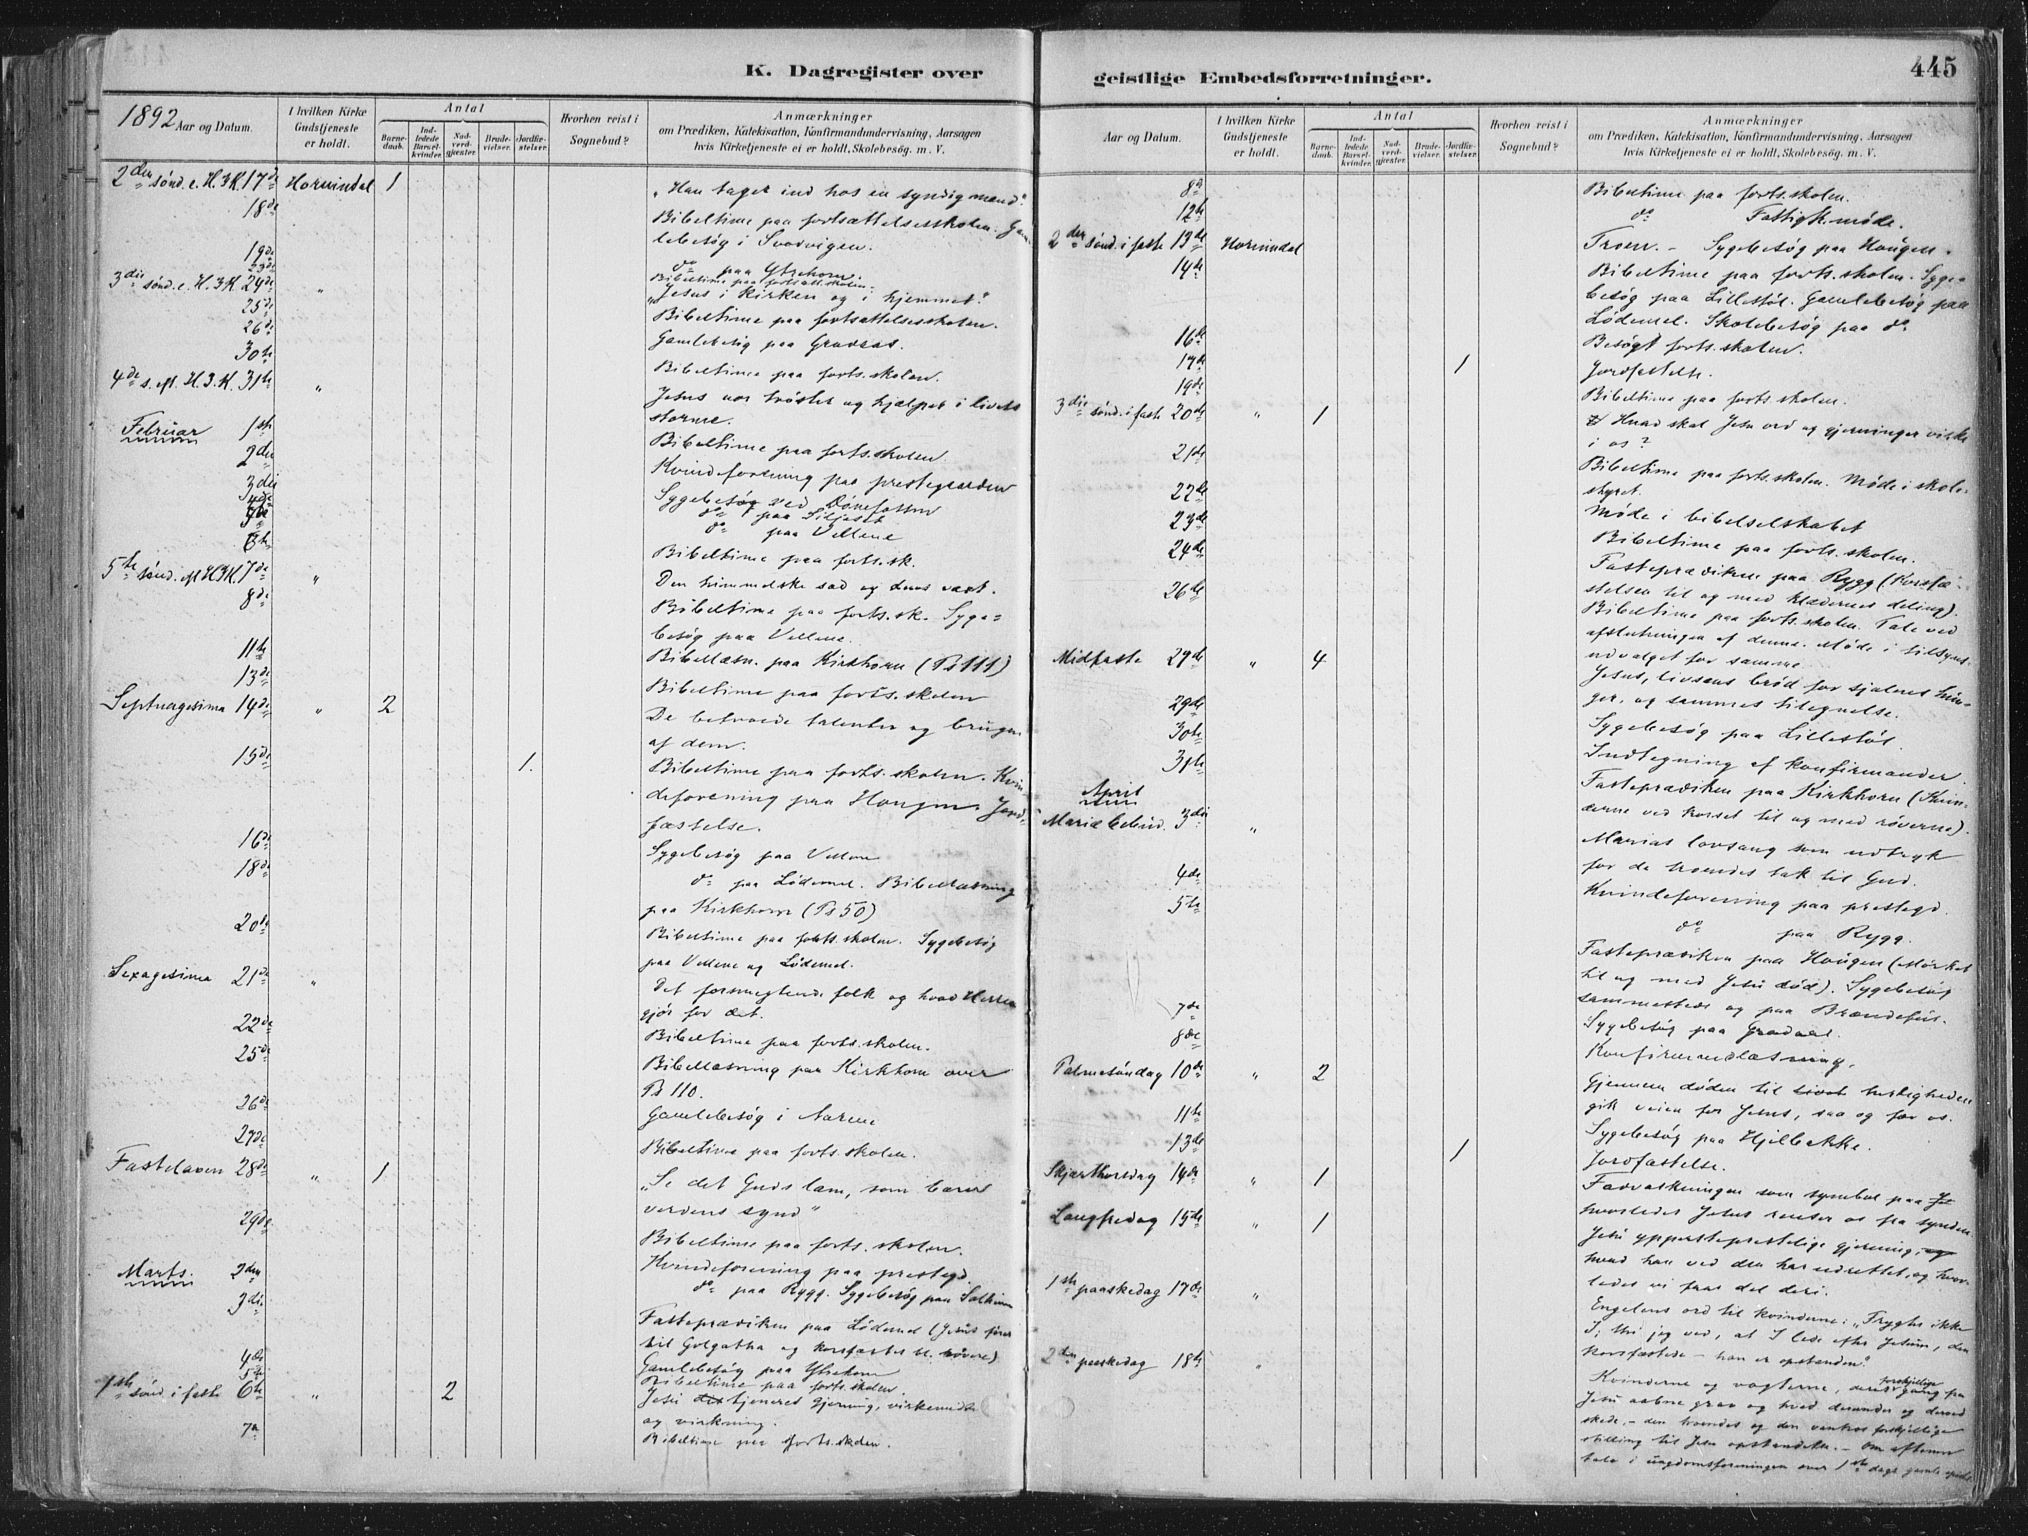 K. Dagregister over
1892 Aar og Datum.
I hvilken Kirke Gudstjeneste er holdt.
Antal
Barne-daab.
Ind-ledede Barsel-kvinder.
Nad-verd-gjester.
Brude-vielser.
Jordfæ-stelser.
Hvorhen reist i Sognebud?
Anmærkninger
om Prædiken, Katekisation, Konfirmandundervisning, Aarsagen
hvis Kirketjeneste ei er holdt, Skolebesøg. m. V.
2den sønd. e. H.3K. 17de Hornindal 1 "Han taget ind hos en syndig mand".
18de Bibeltime paa fortsættelsesskolen.
lebesøg i Svodvigen.
19de do paa Ytrehorn.
23de Bibeltime paa fortsatt.skolen.
3die sønd. e. H.3K 24de " "Jesus i kirken og i hjemmet".
25de Bibeltime paa fortsættelsesskolen.
26de Gamlebesøg paa
30te Bibeltime paa forts.skolen.
4de s. eft. H.3.K. 31te " Jesus vor trøster og hjælper i livets
storme.
Februar 1ste Bibeltime paa forts.skolen.
2den Kvindeforening paa prestegaarden
3die Sygebesøg ved
do paa
do paa Vellene
6te Bibeltime paa forts.sk.
5te sønd. eft H3K. 7de " Den himmelske sæd og dens vext.
8de Bibeltime paa forts.sk. Syge-
besøg paa Vellene.
11te Bibellæsn. paa Kirkhorn (Ps 111)
13de Bibeltime paa forts.skolen
Septuagesima 14de " 2 De betroede talenter og brugen
af dem.
15de 1. Bibeltime paa forts.skolen. Kvin-
deforening paa Hougen. Jord-
fæstelse.
16de Sygebesøg paa Vellene
18de do paa Lødemel. Bibellæsning
paa Kirkhorn (Ps 50)
20de Bibeltime paa forts.skolen. Sygebesøg
paa Vellene og Lødemel.
Sexagesima 21de " Det forsmegtende folk og hvad Herren
gjør for det.
22de Bibeltime paa forts.skolen.
25de Bibellæsning paa Kirkhorn over
Ps 110.
26de Gamlebesøg i Aarene
27de Bibeltime paa forts.skolen.
Fastelaven 28de " 1 "Se det Guds lam, som bærer
verdens synd"
29de Bibeltime paa forts.skolen.
Marts. 2den Kvindeforening paa prestegd.
3die do paa Rygg. Sygebesøg paa
Fasteprædiken paa Lødemel (Jesus føres
til Golgatha og korsfæstes m. røvere)
4de Gamlebesøg paa Ytrehorn
5te Bibeltime paa forts.skolen.
1ste sønd. i faste 6te " 2 Jesu tjeneres gjerning, virkemidler
og virkning.
7de Bibeltime paa forts.skolen.
geistlige Embedsforretninger.
445
Aar og Datum.
I hvilken Kirke Gudstjeneste er holdt.
Antal
Barne-daab.
Ind-ledede Barsel-kvinder.
Nad-verd-gjester.
Brude-vielser.
Jordfæ-stelser.
Hvorhen reist i Sognebud?
Anmærkninger
om Prædiken, Katekisation, Konfirmandundervisning, Aarsagen
hvis Kirketjeneste ei er holdt, Skolebesøg. m. V.
8de Bibeltime paa forts.skolen.
12te do Fattigk.møde.
2den sønd. i faste 13de Hornindal Troen. - Sygebesøg paa Hougen.
14de Bibeltime paa forts.skolen. Syge-
besøg paa Lillestøl. Gamlebesøg paa
Lødemel. Skolebesøg paa do
16te Besøgt forts.skolen.
17de 1 Jordfæstelse.
19de Bibeltime paa forts.skolen.
3die sønd. i faste 20de " 1 Hvad skal Jesu ord og gjerninger virke
i os?
21de Bibeltime paa forts.skolen. Møde i skole-
styret.
22de Møde i bibelselskabet
23de Bibeltime paa forts.skolen.
24de Fasteprædiken paa Rygg (Korsfæ-
stelsen til og med klædernes deling).
26de Bibeltime paa forts.skolen. Tale ved
afslutningen af denne. Møde i tilsyns-
udvalget for samme.
Midfaste 27de " 4 Jesus, livsens brød for sjælenes hun-
ger, og sammes tilegnelse.
29de Sygebesøg paa Lillestøl.
30te Indtegning af konfirmander
31te Fasteprædiken paa Kirkhorn (Kvin-
derne ved korset til og med røverne).
April
Mariæ bebud. 3die " Marias lovsang som udtryk
for de troendes tak til Gud.
4de Kvindeforening paa prestegd.
5te do paa Rygg.
Fasteprædiken paa Hougen (Mørket
til og med Jesu død). Sygebesøg
sammesteds og paa
7de Sygebesøg paa
8de Konfirmandlæsning.
Palmesøndag 10de " 2 Gjennem døden til livet herligheden
gik veien for Jesus, saa og for os.
11te Sygebesøg paa Hjelbakke.
13de 1 Jordfæstelse.
Skjærthorsdag 14de " 1 Fodvaskningen som symbol paa
hvorledes Jesus renser os fra synden
Langfredag 15de " 1 Jesu ypperstepræstelige gjerning, og
hvad han ved den har udrettet, og hvor-
ledes vi faar del deri.
1ste paaskedag 17de " Engelens ord til kvinderne: "Frygter ikke
I; thi jeg ved, at I lede efter Jesum, den
korsfæstede - han er opstanden".
2den paaskedag 18de " Kvinderne og vagterne, deres forskjellige gang fra
Jesu aabne grav og hvad derunder og derved
skede, - den troendes og den vantros forskjellige
stilling til Jesu opstandelse. - Om aftenen
tale i ungdomsforeningen over 1ste dags gamle